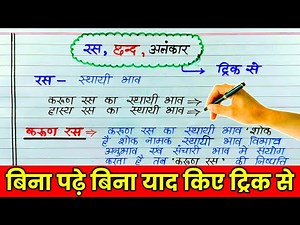 रस, छन्द, अलंकार
ट्रिक से
रस - स्थायी भाव
करूण रस का स्थायी भाव ⇒
हास्य रस का स्थायी भाव ⇒
करूण रस ⇒ करूण रस का स्थायी भाव 'शोक'
है शोक नामक स्थायी भाव विभाव
अनुभाव एवं संचारी भाव में संयोग
करता है तब 'करूण रस' की निष्पत्ति
बिना पढ़े बिना याद किए ट्रिक से